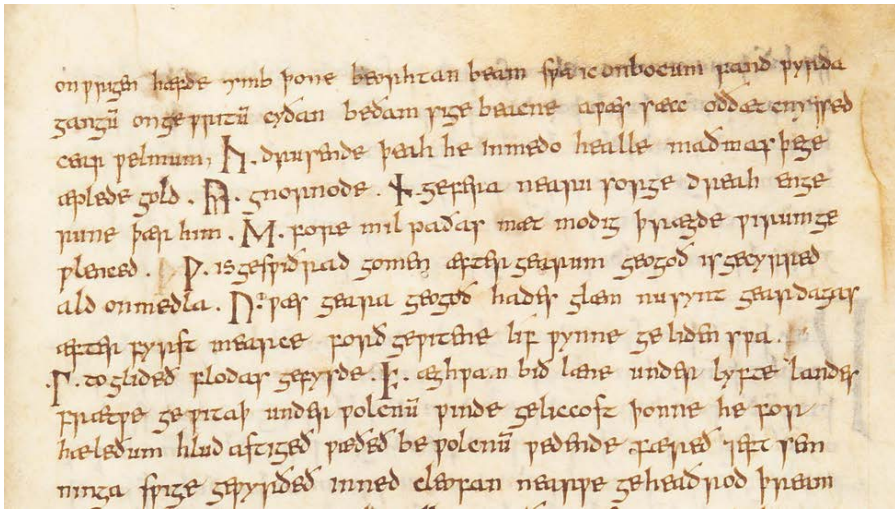 onƿrigen hæfde ymb þone beorhtan beam sƿa ic onbocum fand ƿyrda
gangū ongeƿritū cyðan beðam sige beacne aƿæs sæcc oððæt cnyssed
cear ƿelmum, ᚳ. drusende þeah he inmedo healle maðmas þege
æplede gold. ᚣ. gnornode. ᚾ. gefera nearu sorge dreah enge
rune þær him. ᛖ. fore mil paðas mæt modig þrægde ƿirumge
ƿlenced. ᚹ. is gesƿiðrad gomen æfter gearum geogoð is gecyrred
ald onmedla. ᚢ. ƿæs geara geogoð hades glæm nu synt geardagas
æfter fyrst mearce forð geƿitene lif ƿynne geliden sƿa.
.ᛚ. toglideð flodas gefysde. ᚠ. æghƿam bið læne under lyfte landes
frætƿe geƿitaþ under ƿolcnū ƿinde geliccost þonne he for
hæleðum hlud astigeð ƿæðeð be ƿolcnū ƿedende færeð ⁊eft sem
ninga sƿige geƿyrðeð inned cleofan nearƿe geheaðrod þream